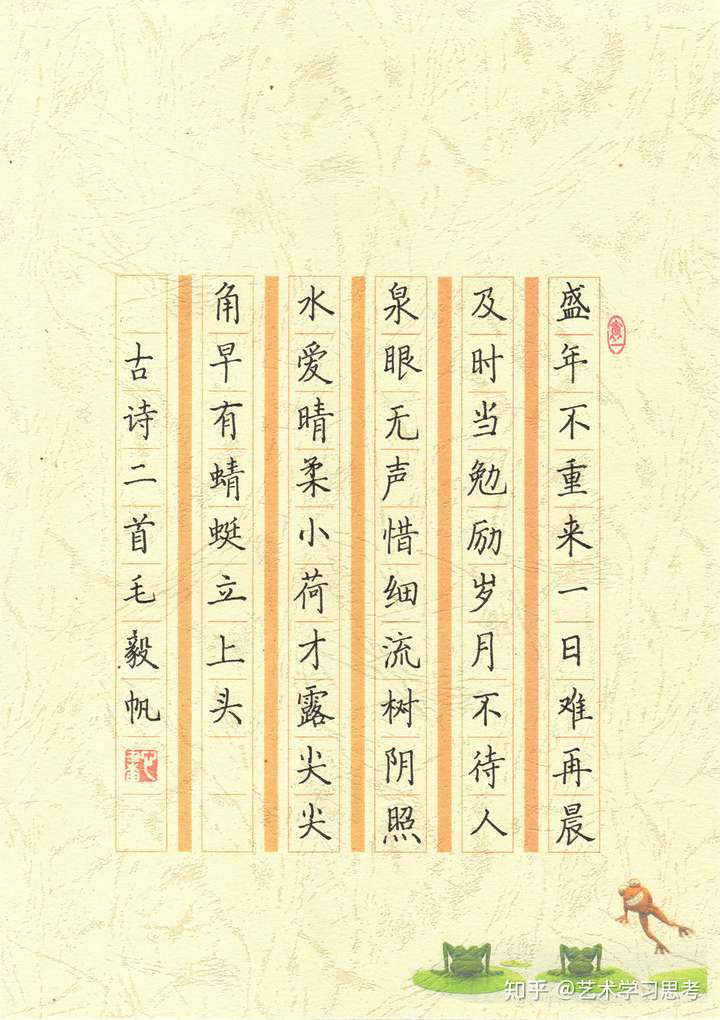 盛年不重来一日难再晨
及时当勉励岁月不待人
泉眼无声惜细流树阴照
水爱晴柔小荷才露尖尖
角早有蜻蜓立上头
古诗二首毛毅帆
知乎 @艺术学习思考